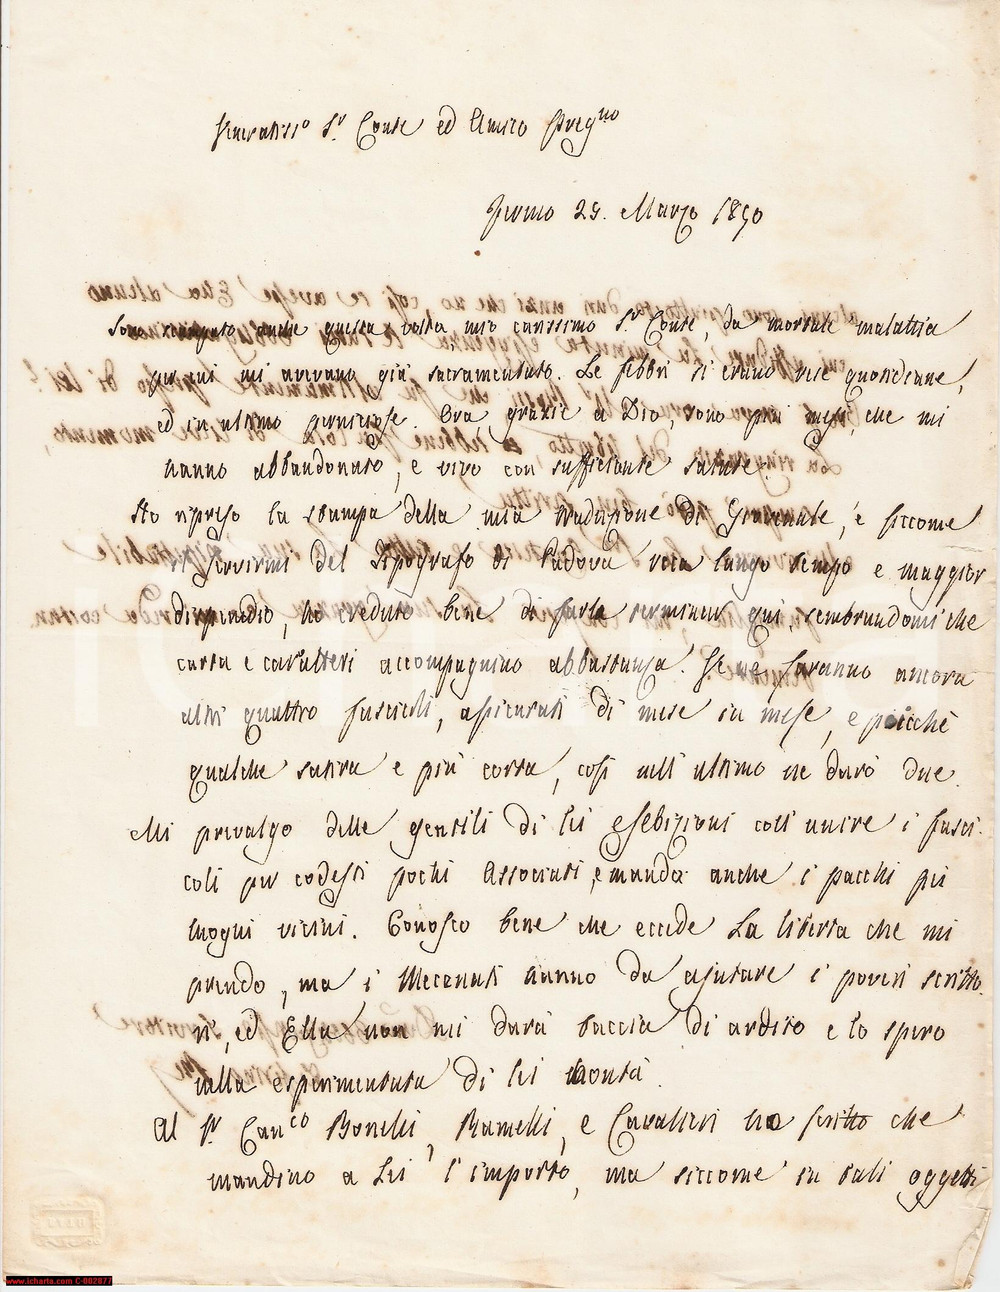 Veneratiss.o Sr. Conte ed Amico Preg.mo
Fermo 29. Marzo 1850
Sono scampato anche questa volta, mio carissimo Sr. Conte, da mortale malattia
per cui mi avevano già sacramentato. Le febbri si erano rese quotidiane,
ed in ultimo perniciose. Ora, grazie a Dio, sono più mesi, che mi
hanno abbandonato, e vivo con sufficiente salute.
Ho ripreso la stampa della mia traduzione di Giovenale, e siccome
il servirmi del Tipografo di Padova reca lungo tempo e maggior
dispendio, ho creduto bene di farla terminar qui, sembrandomi che
carta e caratteri accompagnino abbastanza. Se ne faranno ancora
altri quattro fascicoli, assicurati di mese in mese, e poicchè
qualche satira è più corta, così nell'ultimo ne darò due.
Mi prevalgo delle gentili di lei esebizioni coll'unire i fasci-
coli per codesti pochi Associati, e manda anche i pacchi pei
luoghi vicini. Conosco bene che eccede la libertà che mi
prendo, ma i Mecenati hanno da ajutare i poveri scritto-
ri, ed Ella non mi darà taccia di ardito e lo spero
nella esperimentata di lei bontà.
Al Sr. Can.co Bonelli, Ramelli, e Cavallieri ho scritto che
mandino a Lei l'importo, ma siccome in tali oggetti
www.icharta.com C-002877